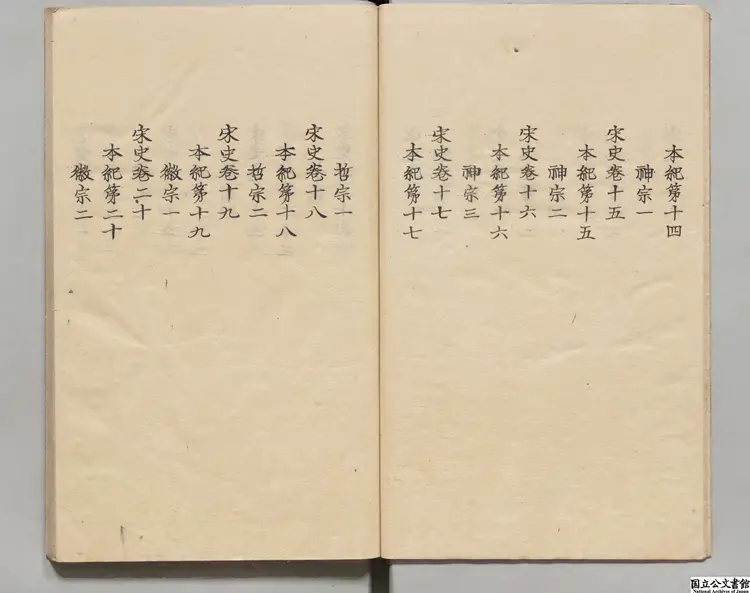 本紀第十四
神宗一
宋史卷十五
本紀第十五
神宗二
宋史卷十六
本紀第十六
神宗三
宋史卷十七
本紀第十七
哲宗一
宋史卷十八
本紀第十八
哲宗二
宋史卷十九
本紀第十九
徽宗一
宋史卷二十
本紀第二十
徽宗二
国立公文書館
National Archives of Japan